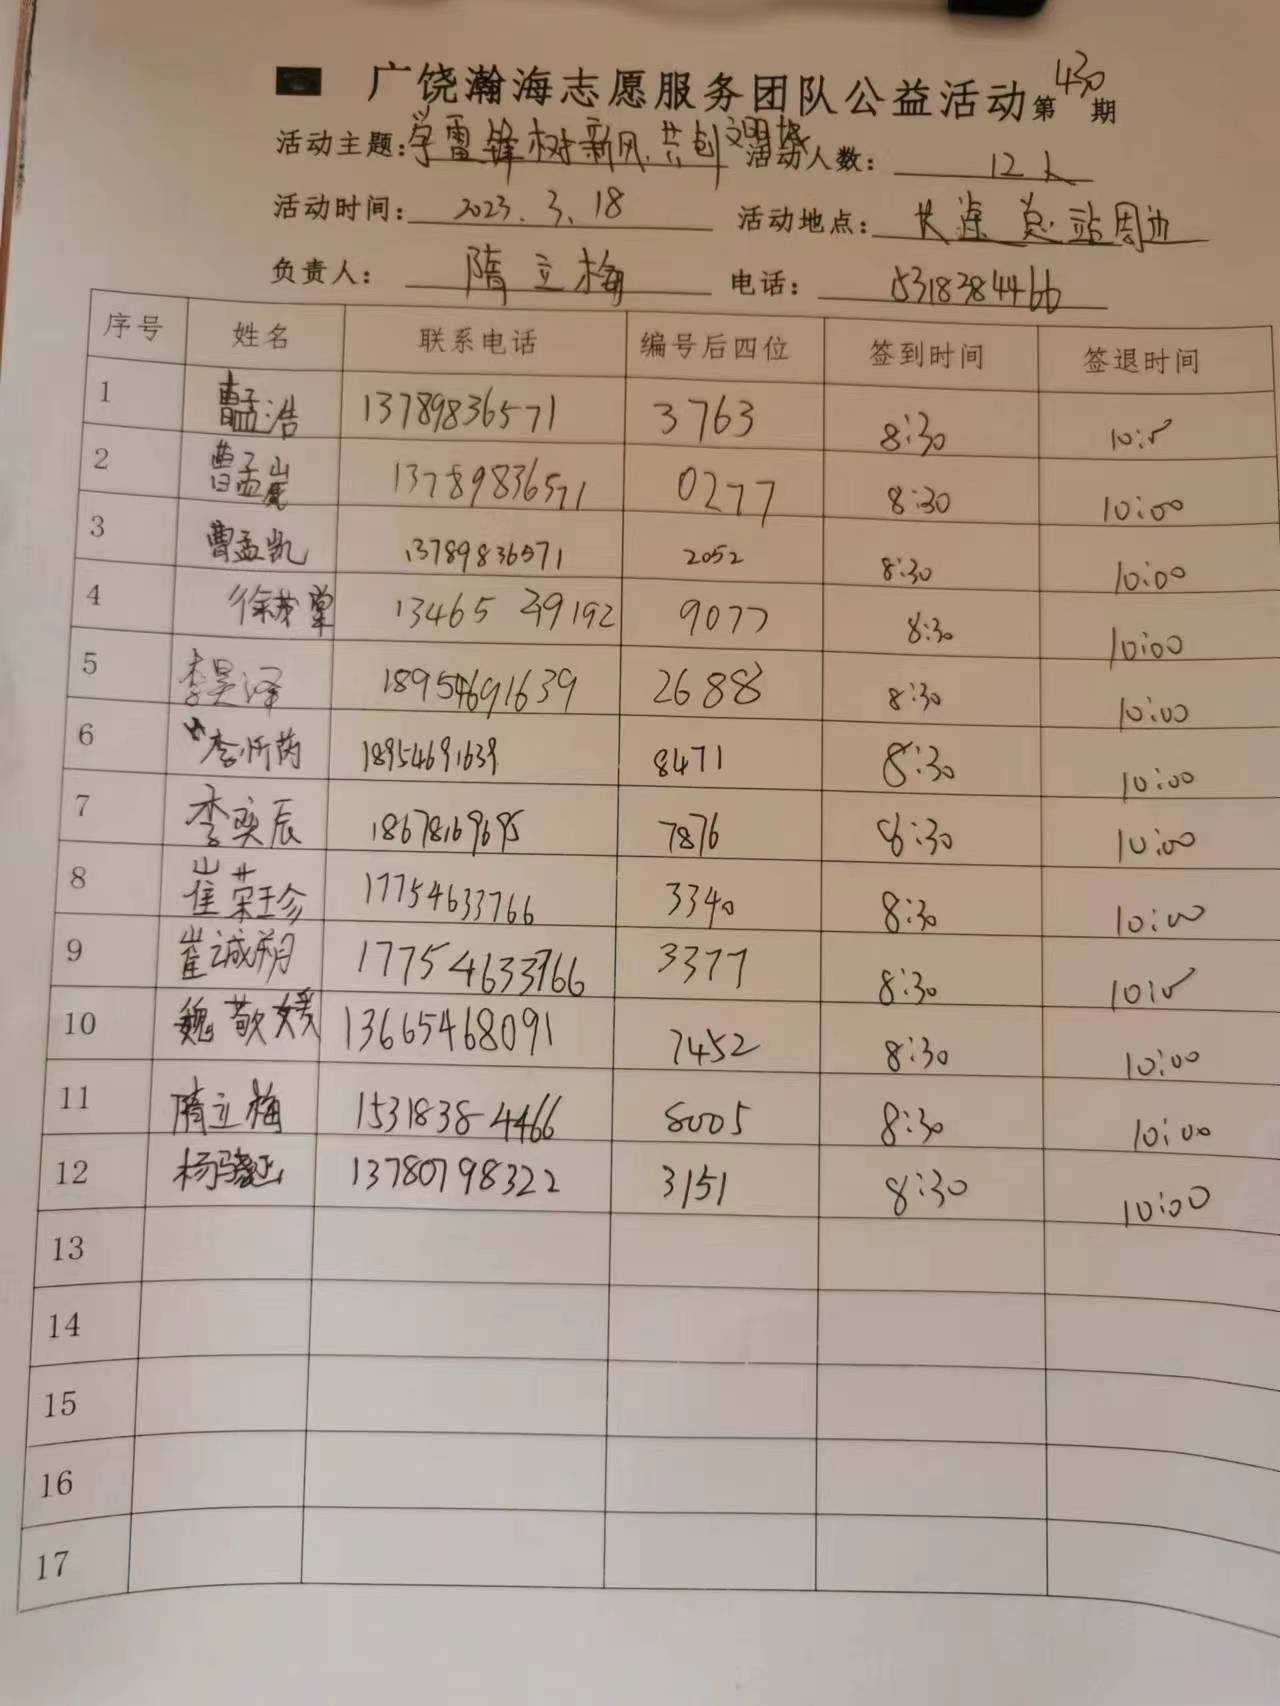 广饶瀚海志愿服务团队公益活动第430期
活动主题：学雷锋树新风.共创文明城 活动人数：12人
活动时间：2023.3.18 活动地点：长途总站周边
负责人：隋立梅 电话：15318384466
序号 姓名 联系电话 编号后四位 签到时间 签退时间
1 曹孟浩 13789836571 3763 8:30 10:00
2 曹孟 13789836571 0277 8:30 10:00
3 曹孟凯 13789836571 2052 8:30 10:00
4 徐茂 13465 39192 9077 8:30 10:00
5 李昊泽 18954691639 2688 8:30 10:00
6 李昕芮 18954691639 8471 8:30 10:00
7 李奕辰 18678169695 7876 8:30 10:00
8 崔荣珍 17754633766 3340 8:30 10:00
9 崔诚朔 17754633766 3377 8:30 10:00
10 魏敬媛 13665468091 7452 8:30 10:00
11 隋立梅 15318384466 8005 8:30 10:00
12 杨 13780798322 3151 8:30 10:00
13
14
15
16
17